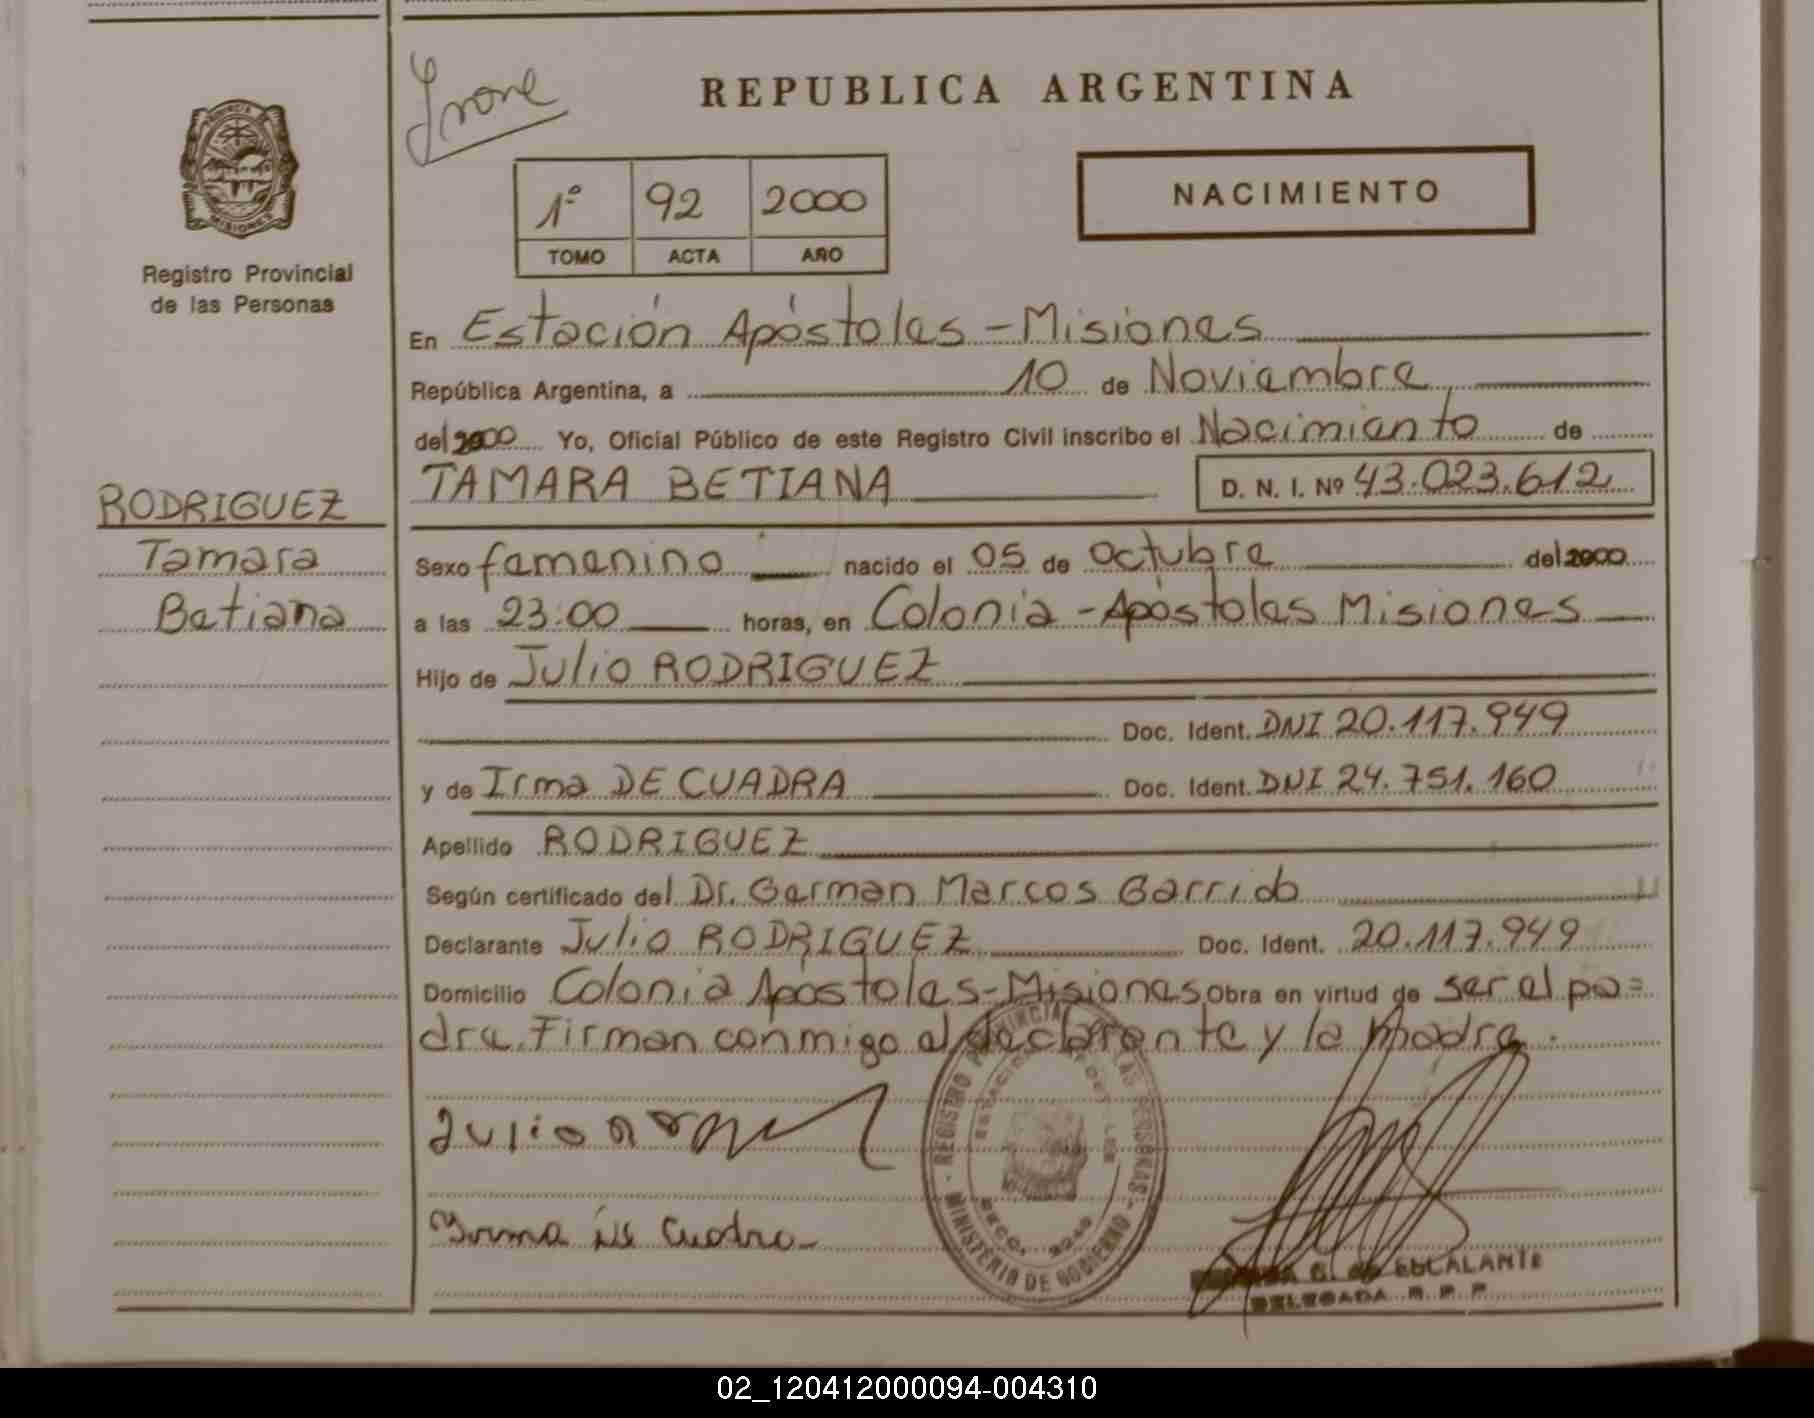 Irone
REPUBLICA ARGENTINA
PROVINCIA
MISIONES
Registro Provincial
de las Personas
1º 92 2000
TOMO ACTA AÑO
NACIMIENTO
En Estación Apóstoles - Misiones
República Argentina, a 10 de Noviembre
del 2000 Yo, Oficial Público de este Registro Civil inscribo el Nacimiento de
TAMARA BETIANA D. N. I. Nº 43.023.612
RODRIGUEZ
Tamara
Betiana
Sexo femenino nacido el 05 de octubre del 2000
a las 23:00 horas, en Colonia - Apóstoles Misiones
Hijo de Julio RODRIGUEZ
Doc. Ident. DNI 20.117.949
y de Irma DE CUADRA Doc. Ident. DNI 24.751.160
Apellido RODRIGUEZ
Según certificado del Dr. German Marcos Garrido
Declarante Julio RODRIGUEZ Doc. Ident. 20.117.949
Domicilio Colonia Apóstoles - Misiones Obra en virtud de ser el pa=
dre. Firman conmigo el declarante y la madre.
Julio
Irma de Cuadra
REGISTRO PROVINCIAL DE LAS PERSONAS - MINISTERIO DE GOBIERNO -
G. de ESCALANTE
DELEGADA R. P. P.
02_120412000094-004310